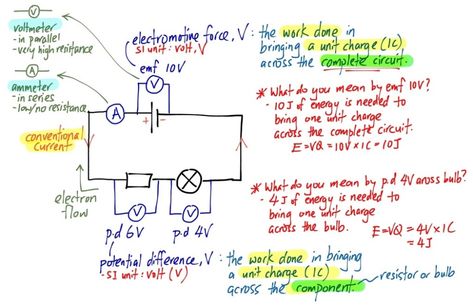 V
voltmeter
- in parallel
- very high resistance
A
ammeter
- in series
- low/no resistance
electromotive force, V : the work done in
SI unit : volt, V
bringing a unit charge (1C)
across the complete circuit.
emf 10V
V
A
+ -
* What do you mean by emf 10V?
- 10J of energy is needed to
bring one unit charge
across the complete circuit.
E = VQ = 10V x 1C = 10J
conventional
current
electron
flow
V
V
p.d 6V
p.d 4V
* What do you mean by p.d 4V across bulb?
- 4J of energy is needed to
bring one unit charge
across the bulb.
E = VQ = 4V x 1C
= 4J
potential difference, V : the work done in bringing
- SI unit : volt (V)
a unit charge (1C)
across the component.
resistor or bulb